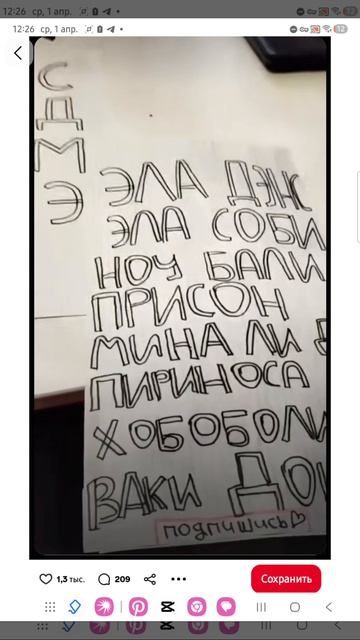 12:26 ср, 1 апр.
12
12:26 ср, 1 апр.
12
С
Д
М
Э
ЭЛА ДЭНС
ЭЛА СОБИ
НОУ БАЛИ
ПРИСОН
МИНА ЛИ
ПИРИНОСА
ХОБОБОЛИ
ВАКИ ДО
подпишись
1,3 тыс.
209
Сохранить